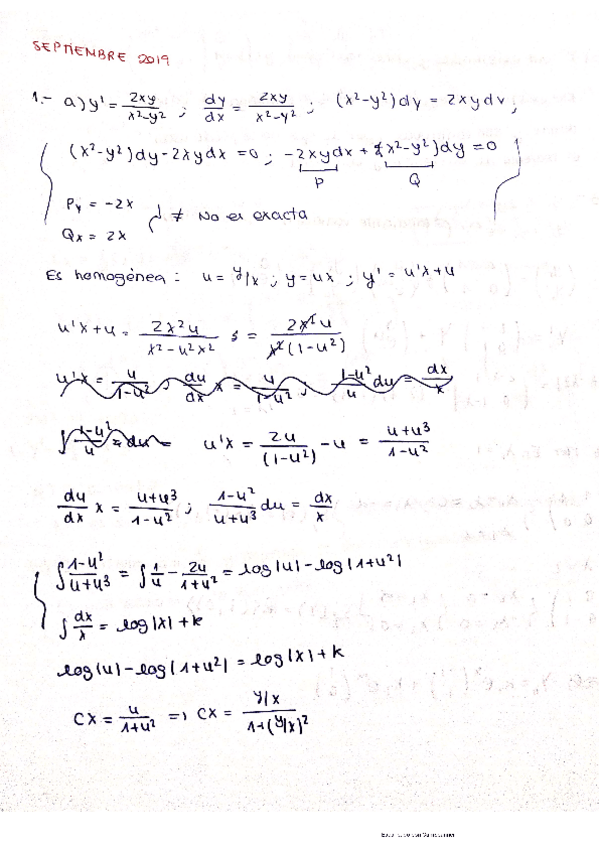 SEPTIEMBRE 2019
1.- a) y' = 2xy/x²-y² ; dy/dx = 2xy/x²-y² ; (x²-y²)dy = 2xydx,
(x²-y²)dy-2xydx = 0 ; -2xydx + (x²-y²)dy = 0
P Q
Py = -2x
≠ No es exacta
Qx = 2x
Es homogénea : u = y/x ; y = ux ; y' = u'x+u
u'x+u = 2x²u/x²-u²x² ; = 2x²u/x²(1-u²)
u'x = u/1-u² ; du/dx x = u/1-u² ; 1-u²/u du = dx/x
∫ 1-u²/u = du = u'x = 2u/(1-u²) - u = u+u³/1-u²
du/dx x = u+u³/1-u² ; 1-u²/u+u³ du = dx/x
∫ 1-u²/u+u³ = ∫ 1/u - 2u/1+u² = log|u| - log|1+u²|
∫ dx/x = log|x|+k
log|u| - log|1+u²| = log|x|+k
Cx = u/1+u² => Cx = y/x/1+(y/x)²